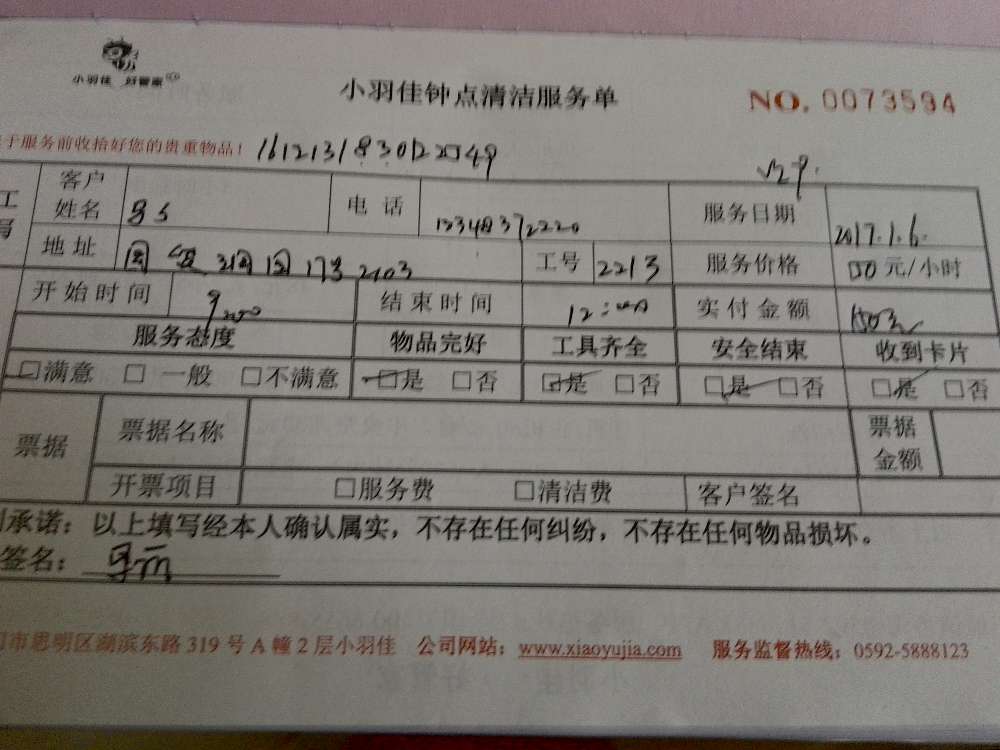 小羽佳 好管家
小羽佳钟点清洁服务单
NO. 0073594
于服务前收拾好您的贵重物品！
客户姓名 电话 服务日期 2017.1.6.
地址 工号 2213 服务价格 元/小时
开始时间 结束时间 12:00 实付金额
服务态度 物品完好 工具齐全 安全结束 收到卡片
□满意 □一般 □不满意 □是 □否 □是 □否 □是 □否 □是 □否
票据 票据名称 票据金额
开票项目 □服务费 □清洁费 客户签名
承诺：以上填写经本人确认属实，不存在任何纠纷，不存在任何物品损坏。
签名：
市思明区湖滨东路 319 号 A 幢 2 层小羽佳 公司网站：www.xiaoyujia.com 服务监督热线：0592-5888123